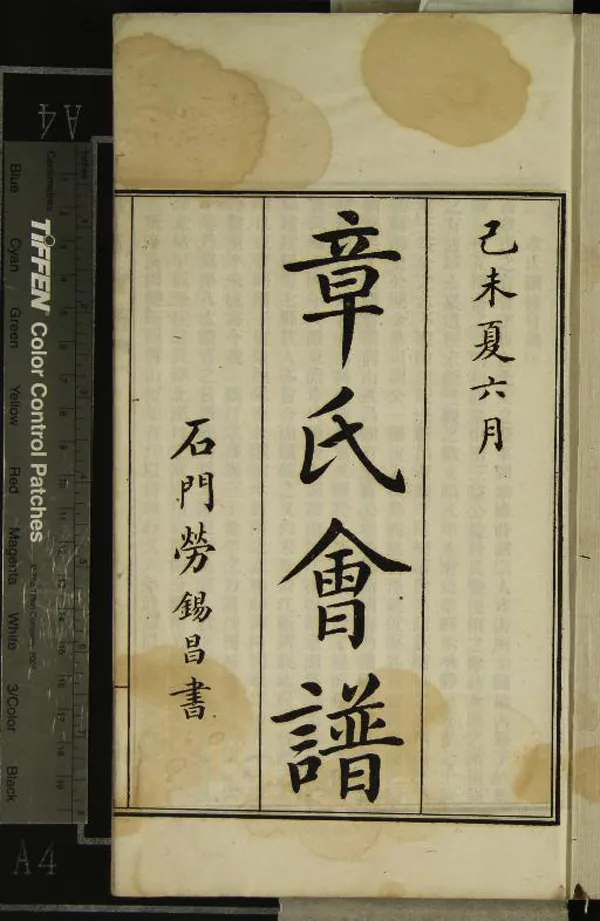 己未夏六月
章氏會譜
石門勞錫昌書
A4
Centimetres
Inches
TIFFEN Color Control Patches
Blue
Cyan
Green
Yellow
Red
Magenta
White
3/Color
Black
A4